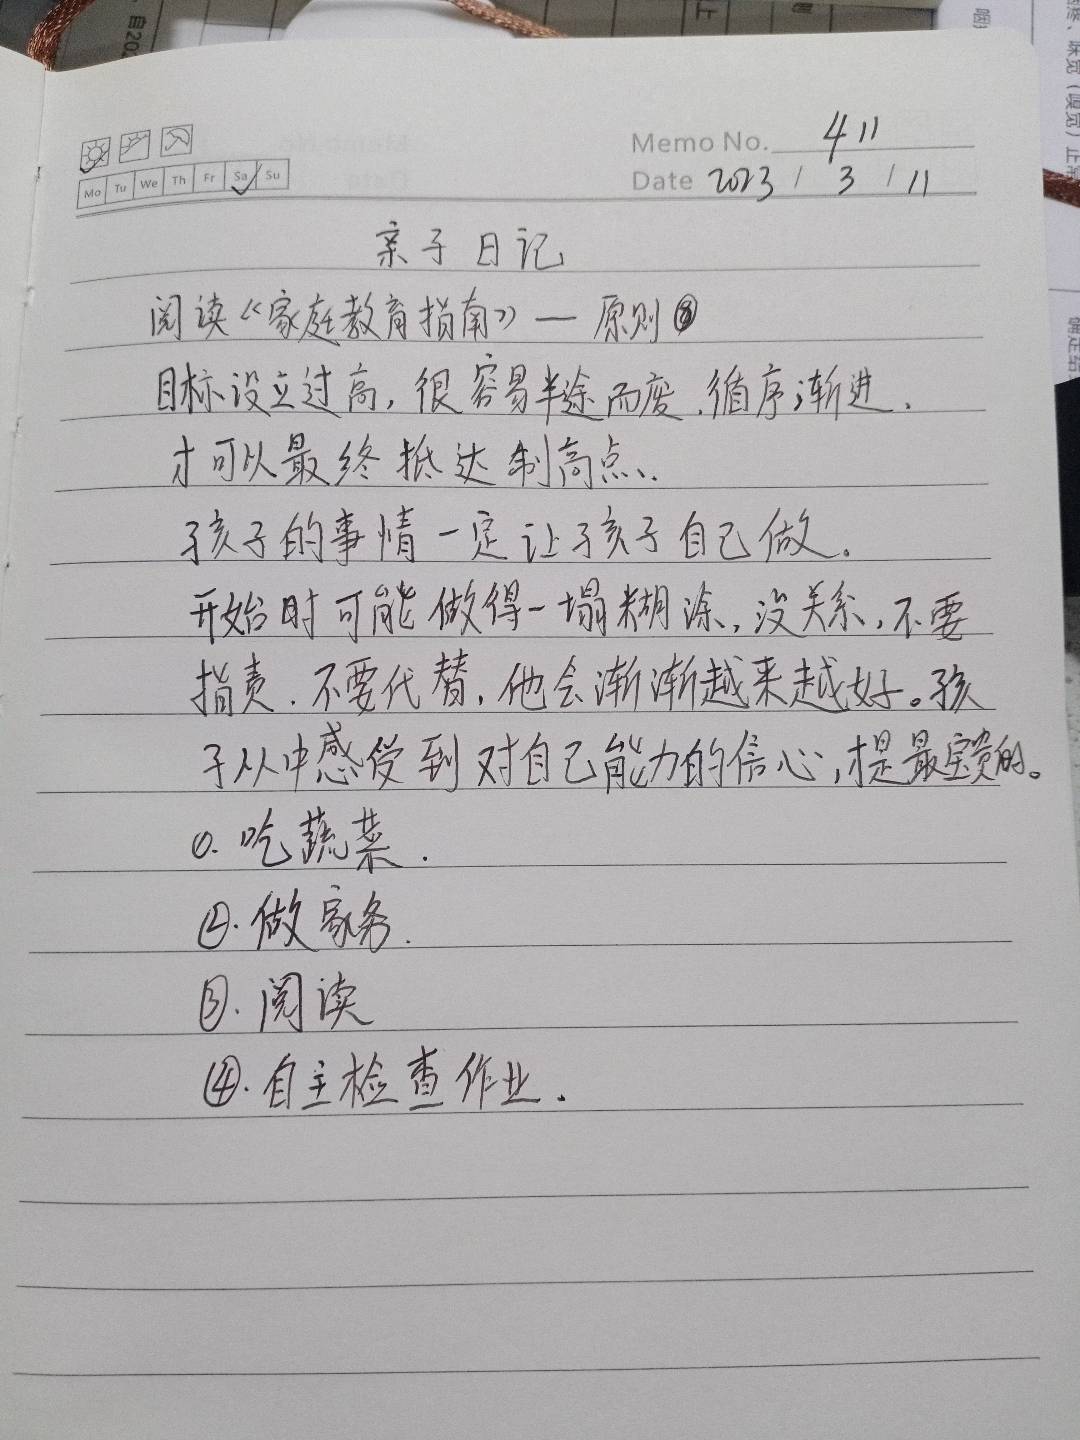 自202
Memo No. 411
Mo Tu We Th Fr Sa Su
Date 2023 / 3 / 11
亲子日记
阅读《家庭教育指南》— 原则⑧
目标设立过高,很容易半途而废.循序渐进.
才可以最终抵达制高点.
孩子的事情一定让孩子自己做。
开始时可能做得一塌糊涂,没关系,不要
指责.不要代替,他会渐渐越来越好。孩
子从中感受到对自己能力的信心,才是最宝贵的。
①.吃蔬菜.
②.做家务.
③.阅读
④.自主检查作业.